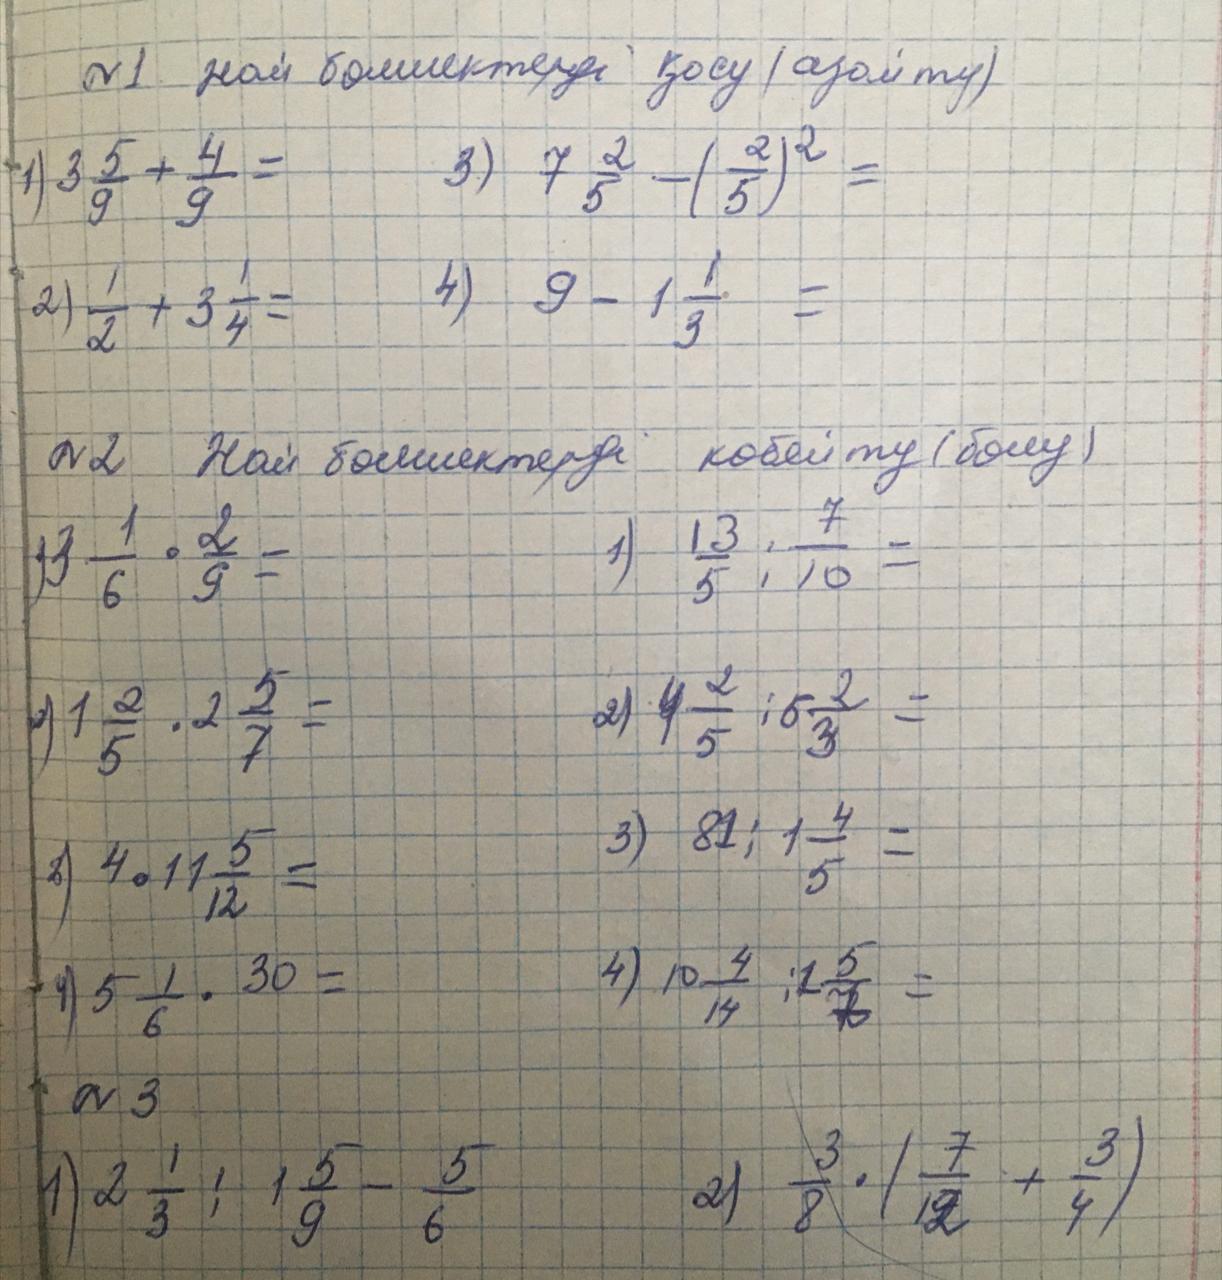 №1 Жай бөлшектерді қосу (азайту)
1) 3 5/9 + 4/9 = 3) 7 2/5 - (2/5)^2 =
2) 1/2 + 3 1/4 = 4) 9 - 1 1/3 =
№2 Жай бөлшектерді көбейту (бөлу)
1) 3 1/6 · 2/9 = 1) 13/5 : 7/10 =
2) 1 2/5 · 2 5/7 = 2) 4 2/5 : 5 2/3 =
3) 4 · 11 5/12 = 3) 81 : 1 4/5 =
4) 5 1/6 · 30 = 4) 10 4/14 : 1 5/
№3
1) 2 1/3 : 1 5/9 - 5/6 2) 3/8 · (7/12 + 3/4)